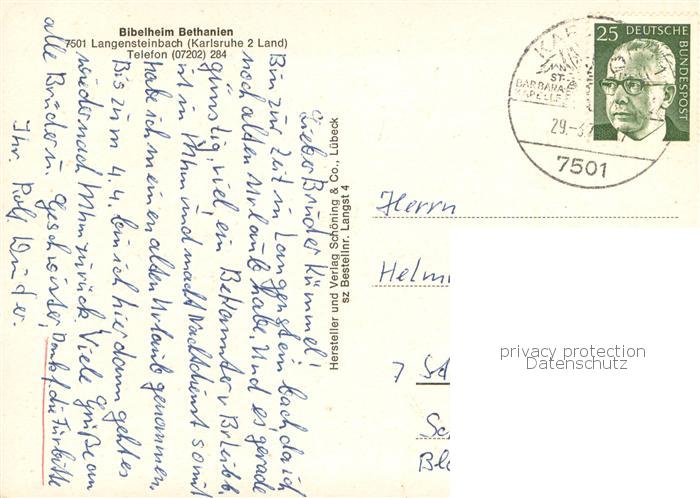 Bibelheim Bethanien
7501 Langensteinbach (Karlsruhe 2 Land)
Telefon (07202) 284
Lieber Bruder Kümmel!
Bin zur Zeit in Langensteinbach, da ich
noch alten Urlaub habe. Und es gerade
günstig, viel, ein Bekannter v Br Leibb.
ist in Mhm und macht Nachtdienst somit
habe ich meinen alten Urlaub genommen.
Bis zum 4.4. bin ich hier dann geht es
wieder nach Mhm zurück. Viele Grüße an
alle Brüder u. Geschwister, Dank f. die Fürbitte
Ihr Rolf
Hersteller und Verlag Schöning & Co., Lübeck
sz Bestellnr. Langst 4
25 DEUTSCHE
BUNDESPOST
ST.-
BARBARA-
KAPELLE
29.-3.
7501
Herrn
Helm
7 St
Sc
Blo
privacy protection
Datenschutz